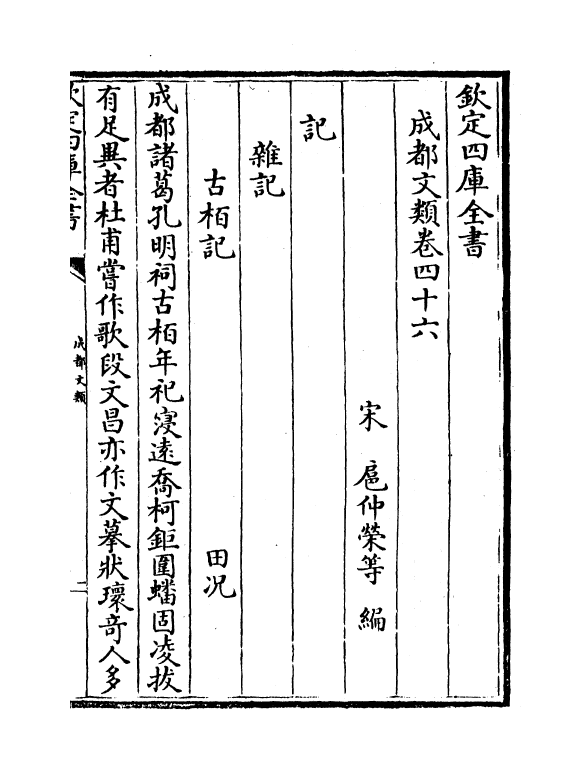 欽定四庫全書
成都文類卷四十六
宋　扈仲榮等　編
記
雜記
古栢記　田况
成都諸葛孔明祠古栢年祀寖遠喬柯鉅圍蟠固凌拔
有足異者杜甫嘗作歌段文昌亦作文摹狀瓌竒人多
欽定四庫全書
成都文類